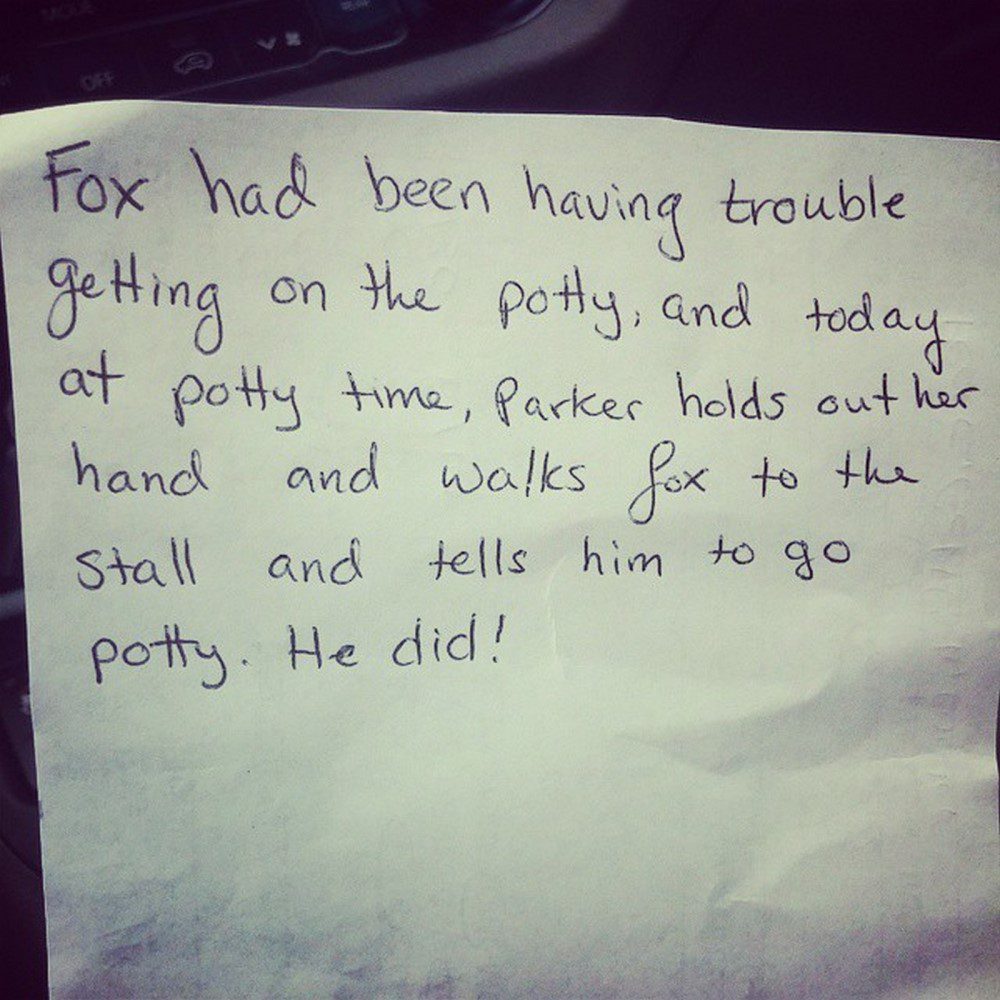 MODE
OFF
Fox had been having trouble
getting on the potty, and today
at potty time, Parker holds out her
hand and walks fox to the
stall and tells him to go
potty. He did!